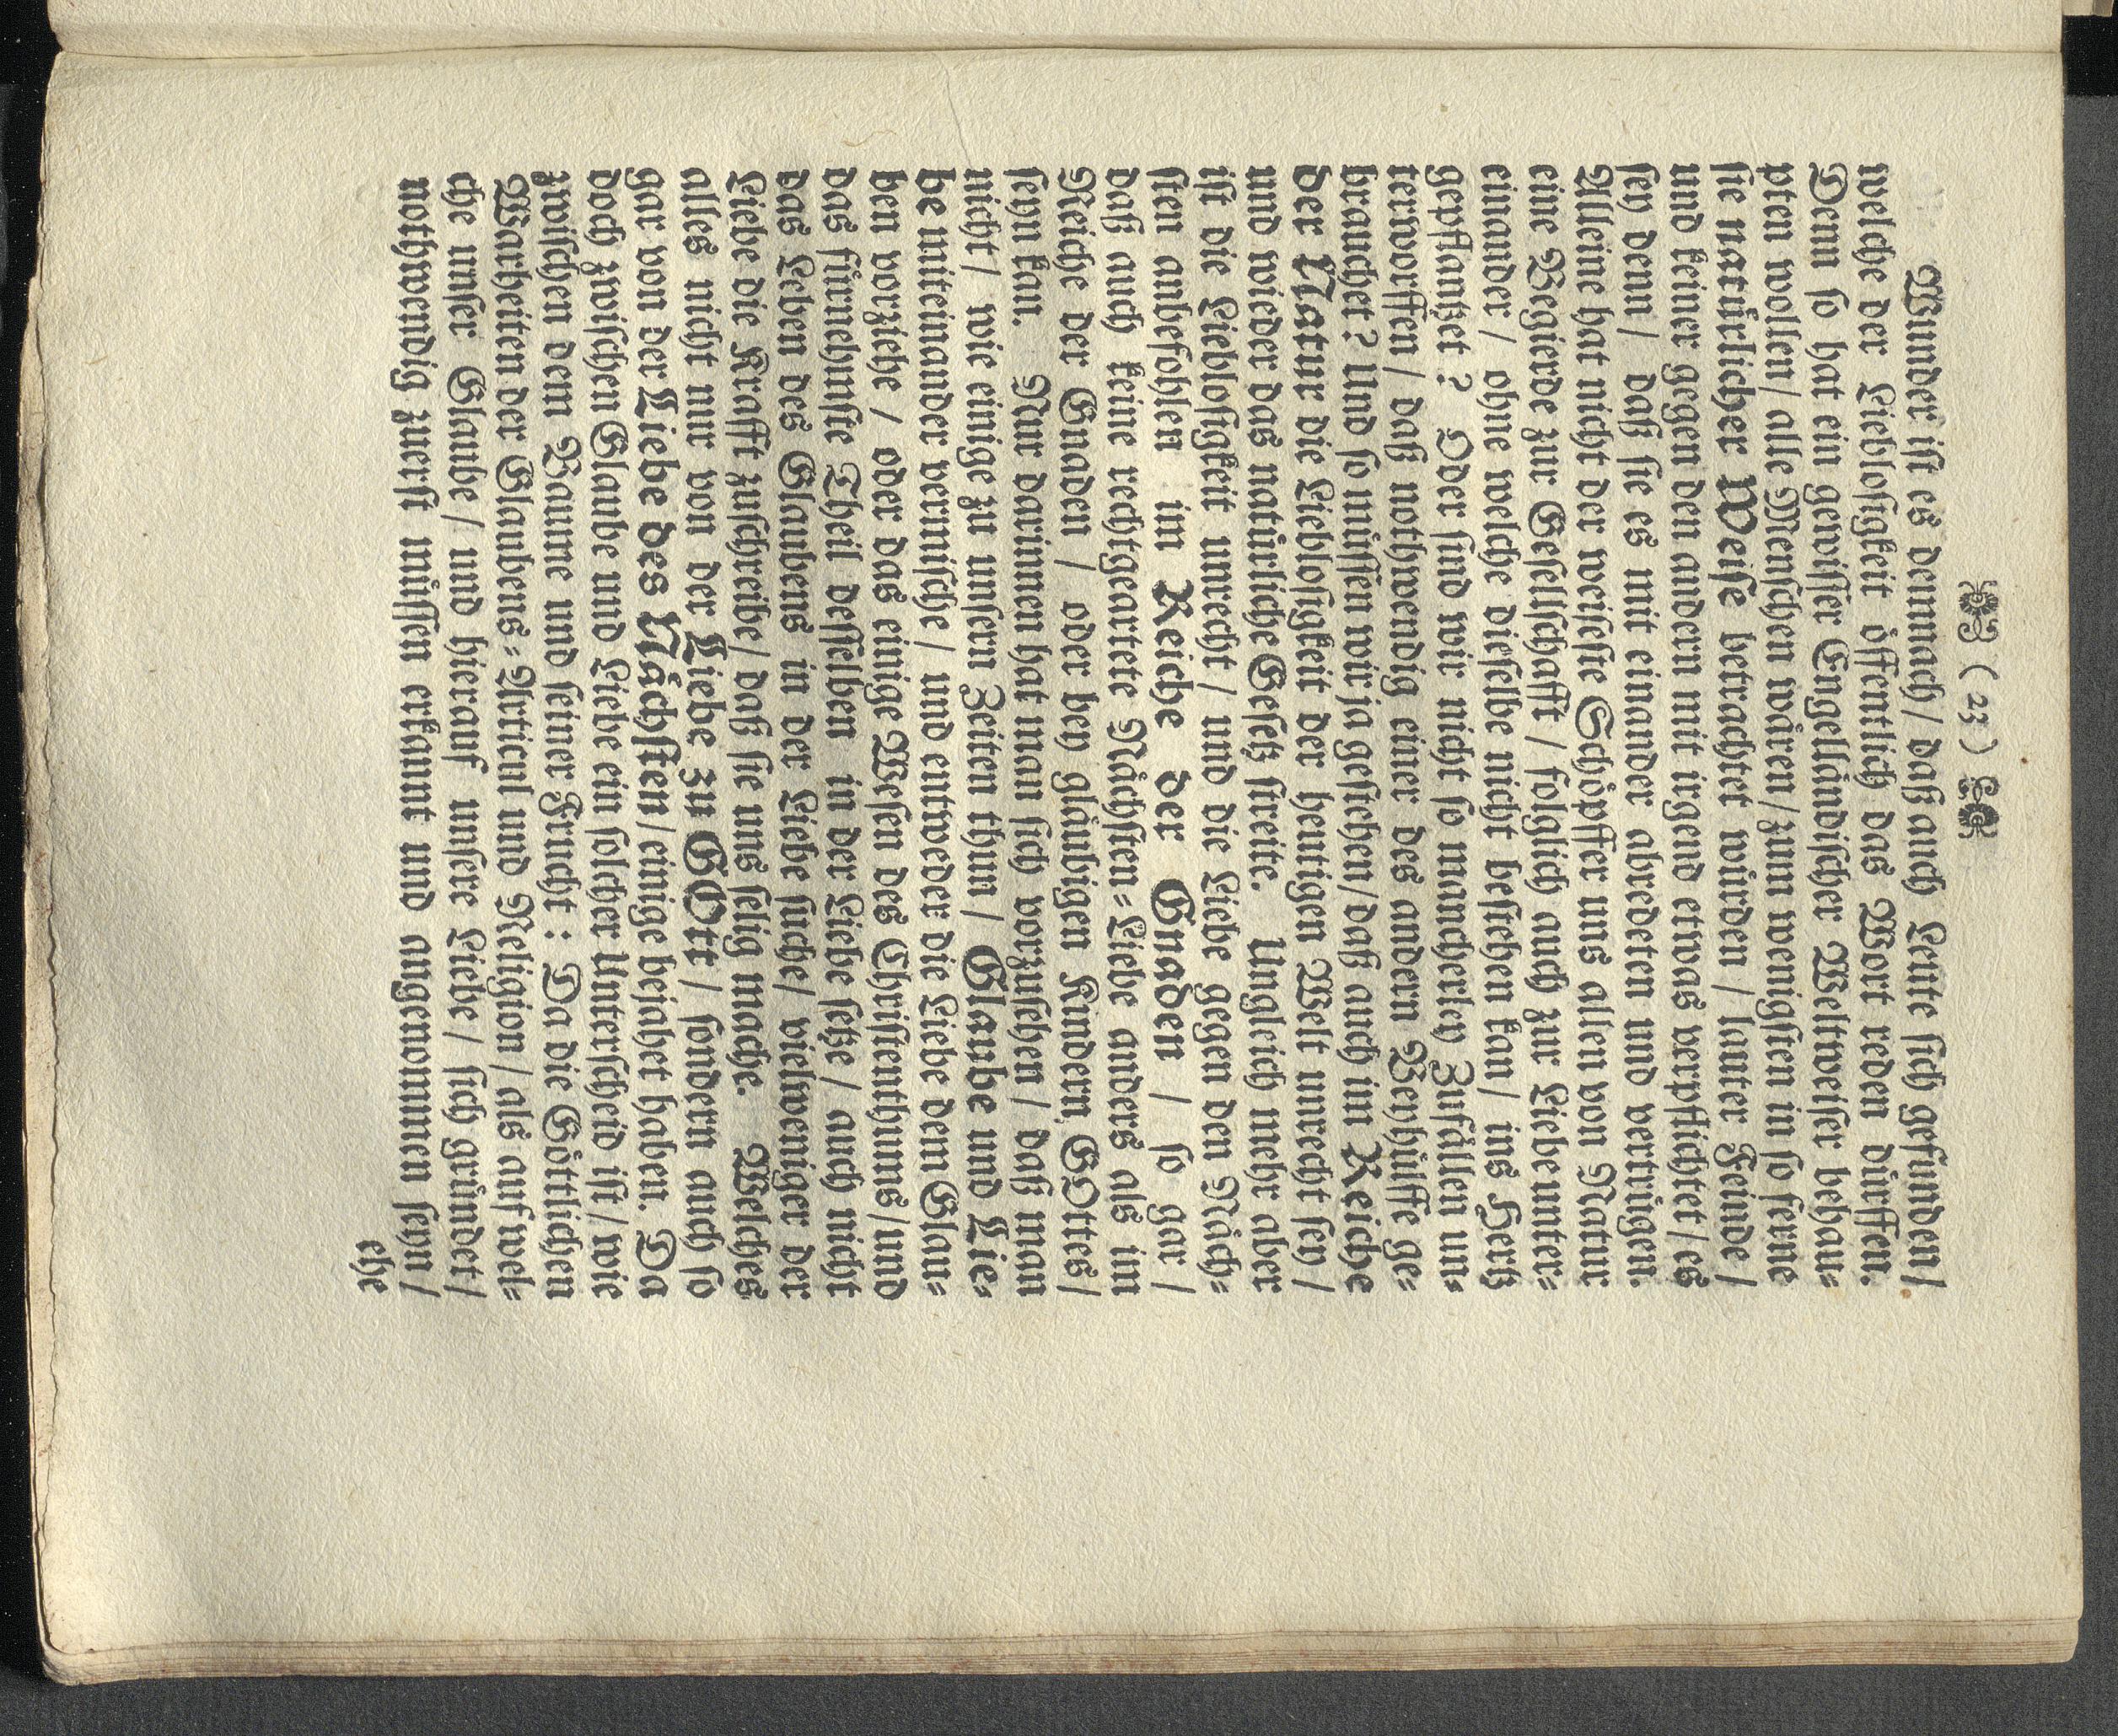 ( 23 )
Wunder ist es demnach/ daß auch Leute sich gefunden/
welche der Lieblosigkeit öffentlich das Wort reden dürffen.
Denn so hat ein gewisser Engelländischer Weltweiser behau-
pten wollen/ alle Menschen wären/ zum wenigsten in so ferne
sie natürlicher Weise betrachtet würden / lauter Feinde /
und keiner gegen den andern mit irgend etwas verpflichtet/ es
sey denn / daß sie es mit einander abredeten und vertrügen.
Alleine hat nicht der weiseste Schöpffer uns allen von Natur
eine Begierde zur Gesellschafft / folglich auch zur Liebe unter-
einander / ohne welche dieselbe nicht bestehen kan/ ins Hertz
gepflantzet ? Oder sind wir nicht so mancherley Zufällen un-
terworffen / daß nothwendig einer des andern Beyhülffe ge-
brauchet? Und so müssen wir ja gestehen/ daß auch im Reiche
der Natur die Lieblosigkeit der heutigen Welt unrecht sey /
und wieder das natürliche Gesetz streite. Ungleich mehr aber
ist die Lieblosigkeit unrecht / und die Liebe gegen den Näch-
sten anbefohlen im Reiche der Gnaden / so gar /
daß auch keine rechtgeartete Nächsten-Liebe anders als im
Reiche der Gnaden / oder bey gläubigen Kindern GOttes/
seyn kan. Nur darinnen hat man sich vorzusehen / daß man
nicht / wie einige zu unsern Zeiten thun / Glaube und Lie-
be miteinander vermische / und entweder die Liebe dem Glau-
ben vorziehe / oder das einige Wesen des Christenthums/ und
das fürnehmste Theil desselben in der Liebe setze / auch nicht
das Leben des Glaubens in der Liebe suche/ vielweniger der
Liebe die Krafft zuschreibe/ daß sie uns selig mache. Welches
alles nicht nur von der Liebe zu GOtt / sondern auch so
gar von der Liebe des Nächsten/ einige bejahet haben. Da
doch zwischen Glaube und Liebe ein solcher Unterscheid ist/ wie
zwischen dem Baume und seiner Frucht : Da die Göttlichen
Warheiten der Glaubens-Articul und Religion/ als auf wel-
che unser Glaube / und hierauf unsere Liebe / sich gründet/
nothwendig zuerst müssen erkannt und angenommen seyn/
ehe